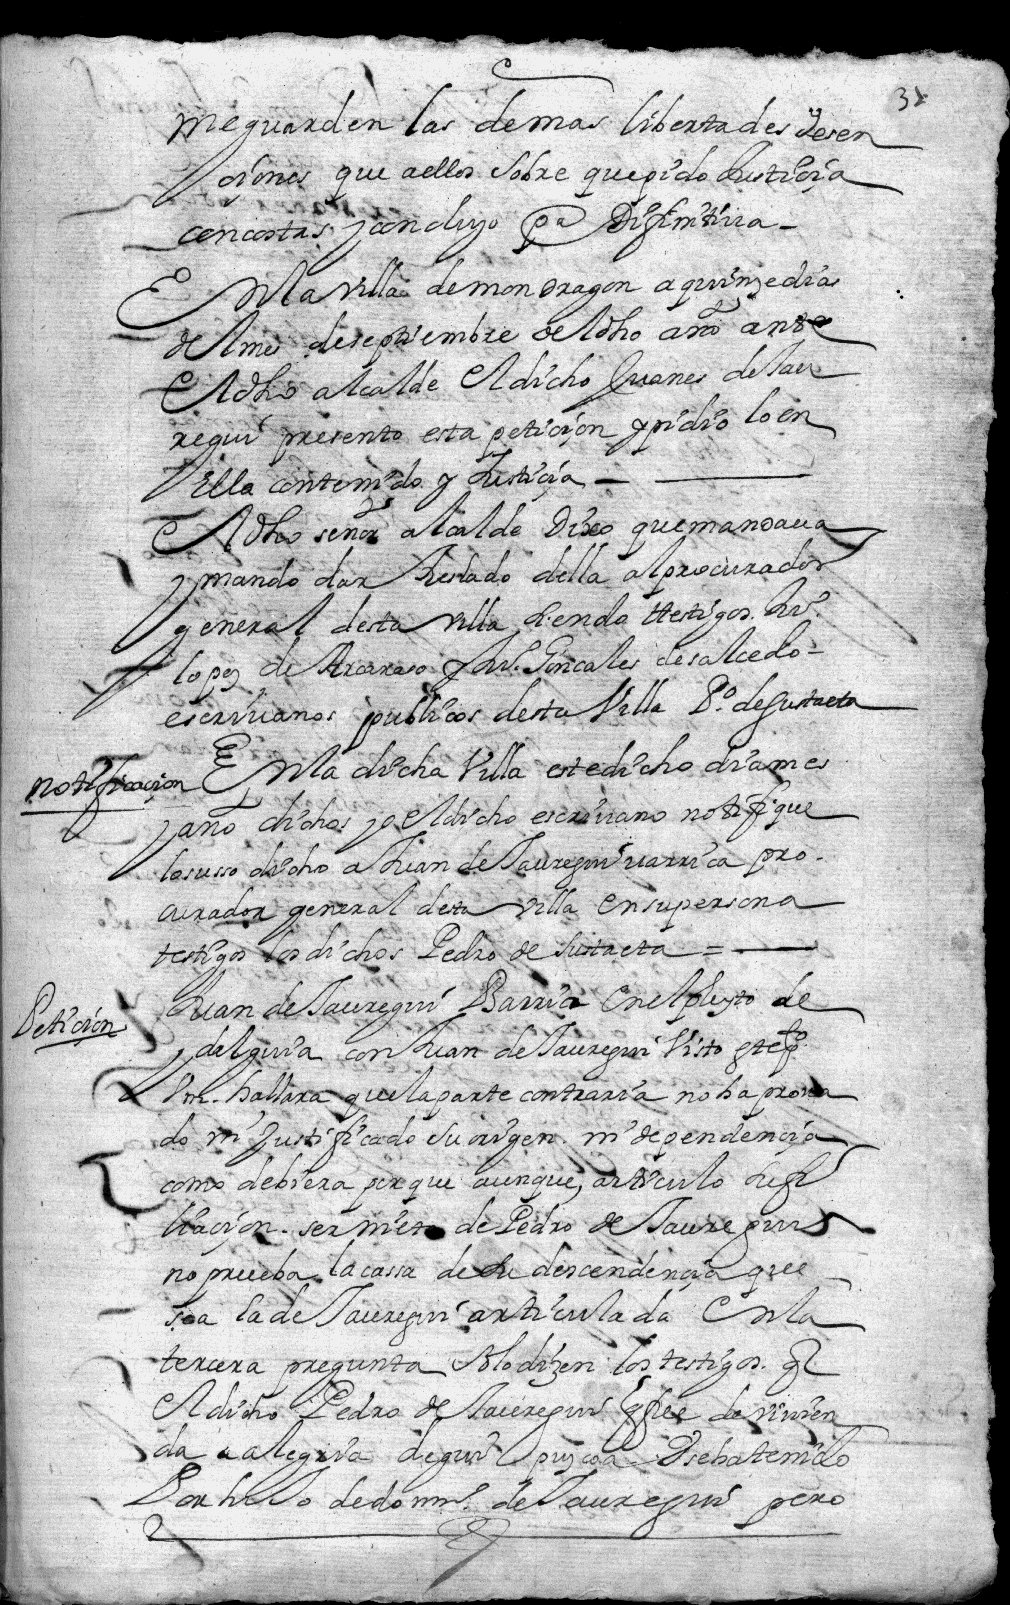 31
me guarden las demas libertades y esen
ciones que a ellos sobre que pido Justicia
con costas, y concluyo pa Difinitiva
En la villa de mondragon a quinze dias
del mes de septiembre del dho año ante
el dho alcalde el dicho Juanes de Jau
regui presento esta peticion y pidio lo en
ella contenido y Justicia
el dho señor alcalde Dixo que mandaua
y mando dar treslado della al procurador
general desta villa siendo testigos Ju.
lopez de y Ju. Goncales de salcedo
escriuanos publicos desta Villa P.o de Gustaeta
notificacion
En la dicha Villa este dicho dia mes
y año dichos yo el dicho escriuano notifique
lo susso dicho a Juan de Jauregui varrica pro
curador general desta villa en su persona
testigos los dichos Pedro de Gustaeta
Peticion
Juan de Jauregui Barrica en el pleyto de
ydalguia con Juan de Jauregui Visto
Vm. hallara que la parte contraria no ha proua
do ni Justificado su origen ni dependencia
como debiera porque aunque articulo su fi
liacion ser nieto de Pedro de Jauregui
no prueba la cassa de su descendencia que
sea la de Jauregui articulada en la
tercera pregunta solo dizen los testigos q
el dicho Pedro de Jauregui q fue de viuien
da a alegria de guipuzcoa Dse ha tenido
Por hijo de domi. de Jauregui pero